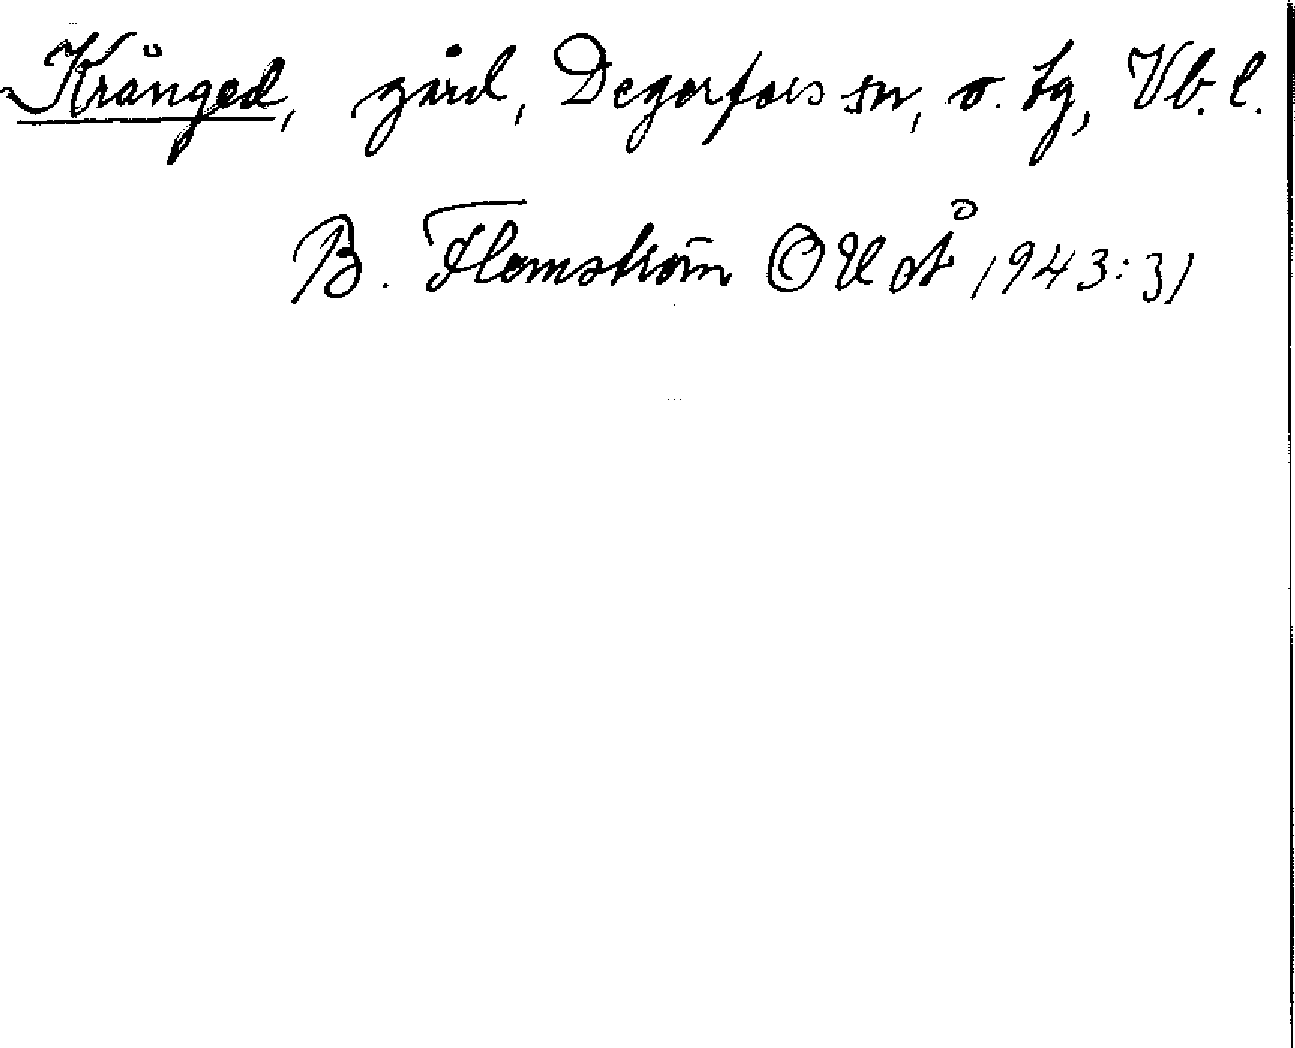 Krånged, gård, Degerfors sn, o. tg, Vb. l.
B. Flemström OUÅ 1943:31